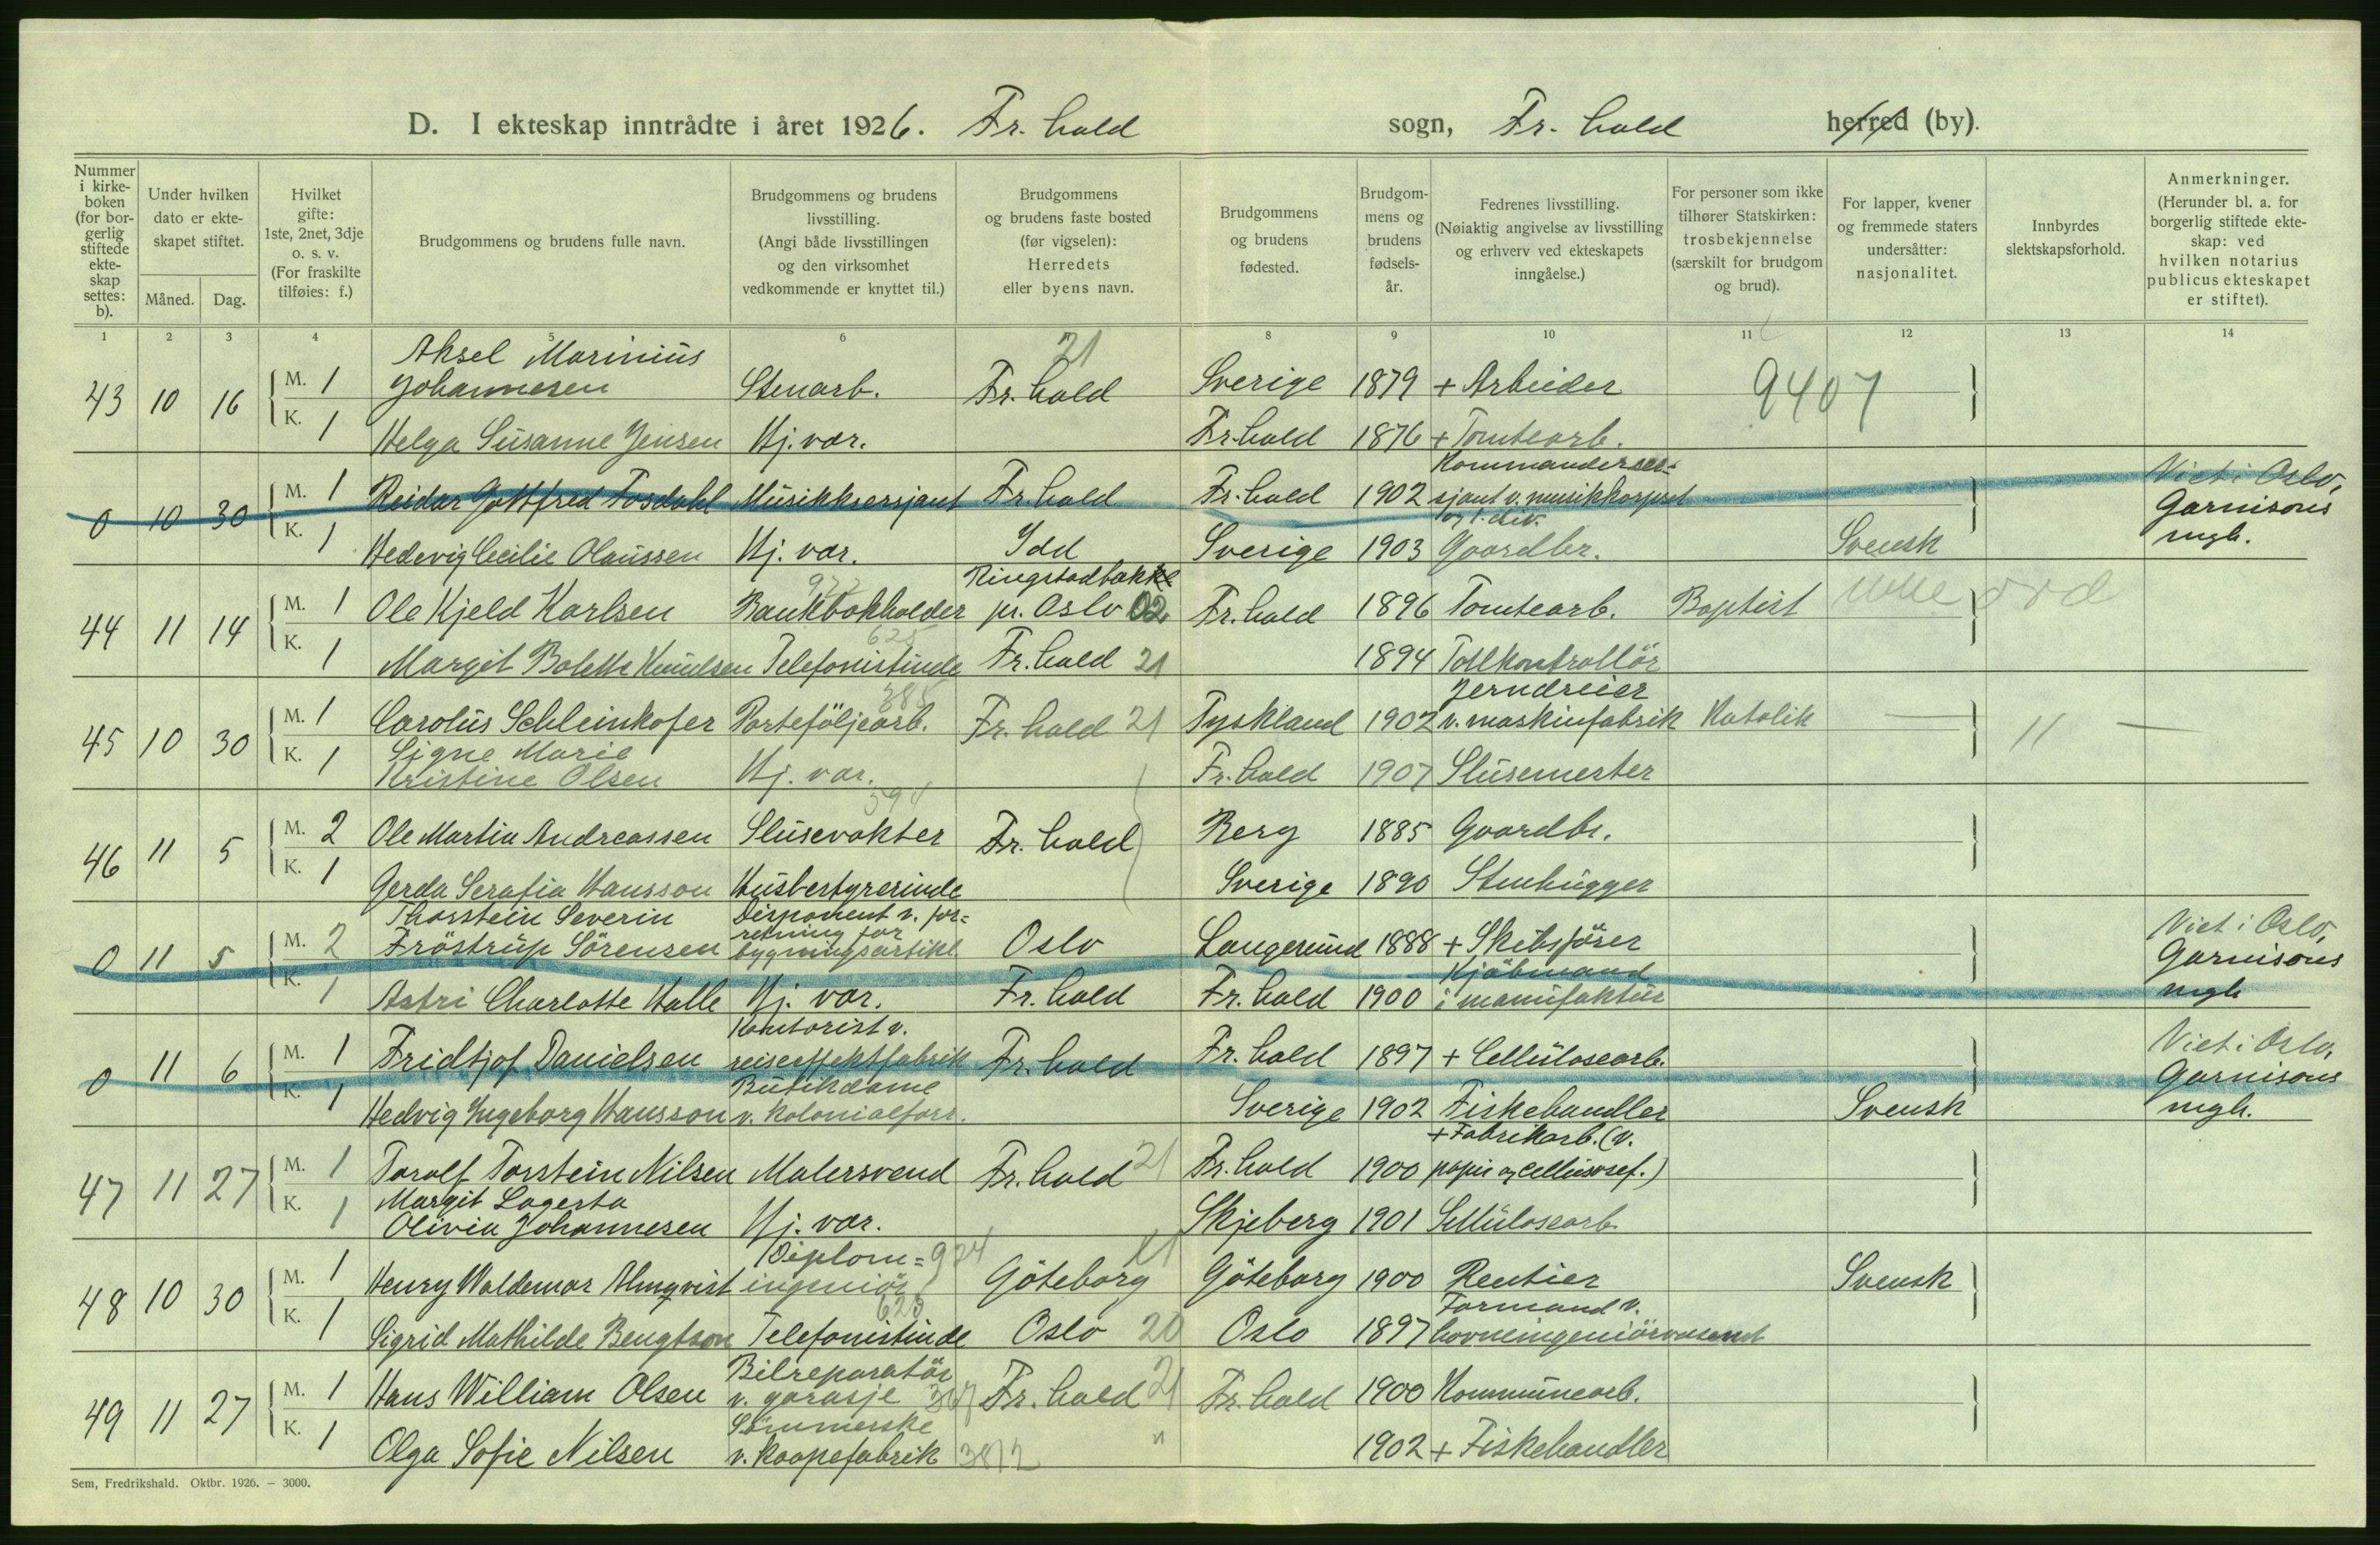 D. I ekteskap inntrådte i året 1926. Fr. hald sogn, Fr. hald herred (by).
Nummer i kirkeboken (for borgerlig stiftede ekteskap settes: b).
Under hvilken dato er ekteskapet stiftet.
Måned. Dag.
Hvilket gifte: 1ste, 2net, 3dje o. s. v. (For fraskilte tilføies: f.)
Brudgommens og brudens fulle navn.
Brudgommens og brudens livsstilling. (Angi både livsstillingen og den virksomhet vedkommende er knyttet til.)
Brudgommens og brudens faste bosted (før vigselen): Herredets eller byens navn.
Brudgommens og brudens fødested.
Brudgommens og brudens fødselsår.
Fedrenes livsstilling. (Nøiaktig angivelse av livsstilling og erhverv ved ekteskapets inngåelse.)
For personer som ikke tilhører Statskirken: trosbekjennelse (særskilt for brudgom og brud).
For lapper, kvener og fremmede staters undersåtter: nasjonalitet.
Innbyrdes slektskapsforhold.
Anmerkninger. (Herunder bl. a. for borgerlig stiftede ekteskap: ved hvilken notarius publicus ekteskapet er stiftet).
1 2 3 4 5 6 8 9 10 11 12 13 14
Aksel Marinius 21
43 10 16 M. 1 Johannesen Stenarb. Fr. hald Sverige 1879 + Arbeider 9407
K. 1 Helga Susanne Jensen Hj. vær. Fr. hald 1876 + Tomtearb.
Kommandersersjant v. musikkorpset
0 10 30 M. 1 Reidar Gottfred Fosdahl Musikksersjant Fr. hald Fr. hald 1902 Viet i Oslo, Garnisons mgh.
K. 1 Hedevig Cecilie Olaussen Hj. vær. Idd Sverige 1903 Gaardbr. Svensk
Ringstadbakke
44 11 14 M. 1 Ole Kjeld Karlsen Bankbokholder pr. Oslo 02 Fr. hald 1896 Tomtearb. Baptist
K. 1 Margit Bolette Knudsen Telefonistinde 625 Fr. hald 21 1894 Tollkontrollör
385 Jerndreier
45 10 30 M. 1 Carolus Schleinkofer Porteföljearb. Fr. hald 21 Tyskland 1902 v. maskinfabrik Katolik — 11 —
Signe Marie
K. 1 Kristine Olsen Hj. vær. Fr. hald 1907 Slusemester
594
46 11 5 M. 2 Ole Martin Andreassen Slusevokter Fr. hald Berg 1885 Gaardbr.
K. 1 Gerda Serafia Hansson Husbestyrerinde Sverige 1890 Stenhugger
Thorstein Severin Disponent v. for=
retning for
0 11 5 M. 2 Fröstrup Sörensen bygningsartikl. Oslo Langesund 1888 + Skibsförer Viet i Oslo, Garnisons mgh
Kjöbmand
K. 1 Astri Charlotte Halle Hj. vær. Fr. hald Fr. hald 1900 i manufaktur
Kontorist v.
0 11 6 M. 1 Fridtjof Danielsen reiseeffektfabrik Fr. hald Fr. hald 1897 + Cellulosearb. Viet i Oslo, Garnisons mgh.
Butikdame
K. 1 Hedvig Ingeborg Hansson v. kolonialforr. Sverige 1902 Fiskehandler Svensk
+ Fabrikarb. (v.
47 11 27 M. 1 Torolf Torstein Nilsen Malersvend Fr. hald 21 Fr. hald 1900 papir og cellulosef.)
Margit Lagerta
K. 1 Olivia Johannesen Hj. vær. Skjeberg 1901 Cellulosearb.
Diplom= 924 21
48 10 30 M. 1 Henry Waldemar Almqvist ingeniör Göteborg Göteborg 1900 Rentier Svensk
625 Formand v.
K. 1 Sigrid Mathilde Bengtson Telefonistinde Oslo 20 Oslo 1897 havneingeniörvæsenet
Bilreparatör
49 11 27 M. 1 Hans William Olsen v. garasje 367 Fr. hald 21 Fr. hald 1900 Kommunearb.
Sömmerske
K. 1 Olga Sofie Nilsen v. kaapefabrik " 1902 + Fiskehandler
Sem, Fredrikshald. Oktbr. 1926. – 3000.